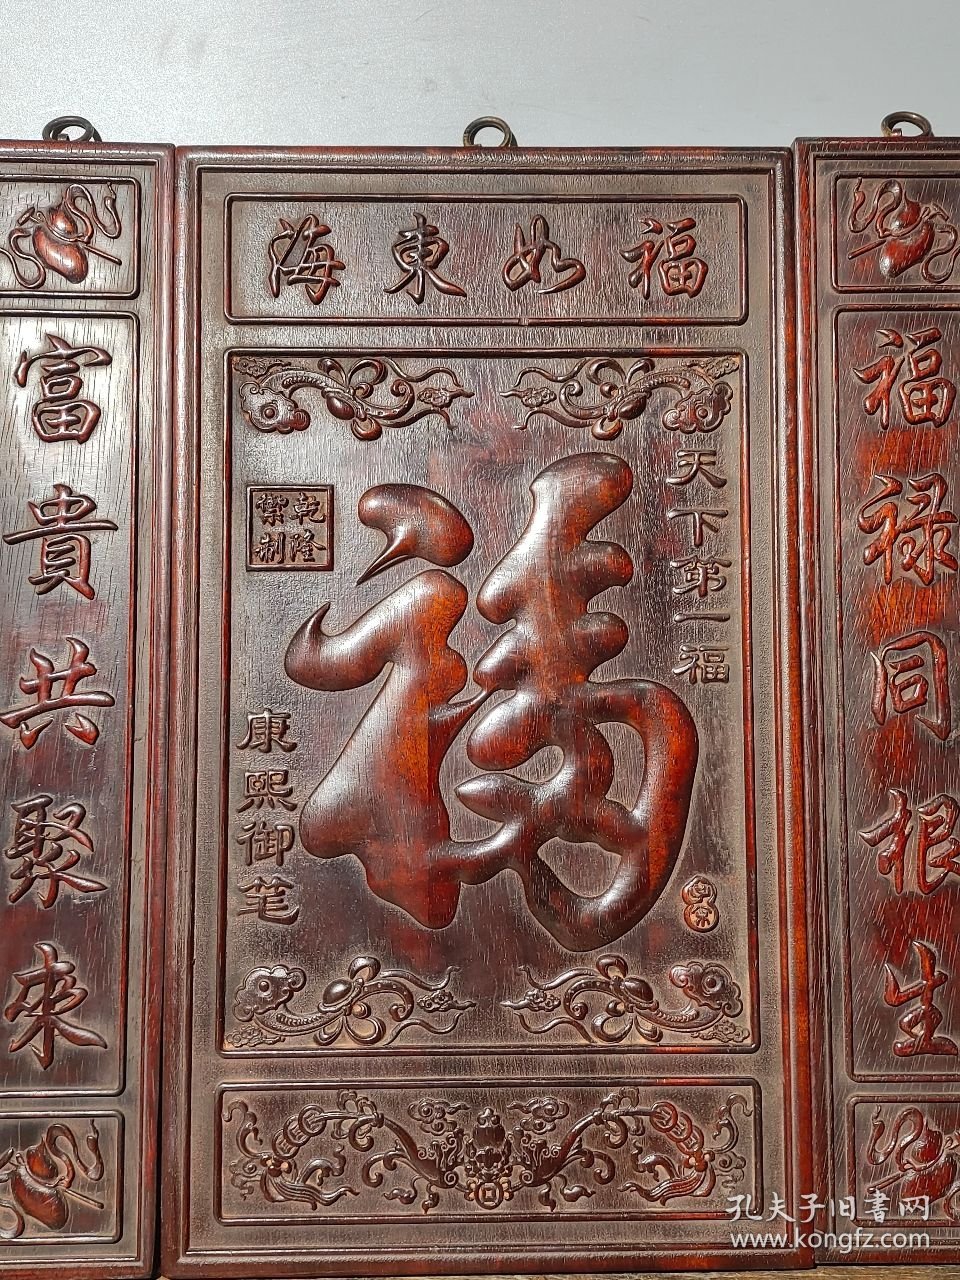 福如東海
福禄同根生
富貴共聚來
天下第一福
乾隆
禦制
康熙御笔
孔夫子旧書网
www.kongfz.com